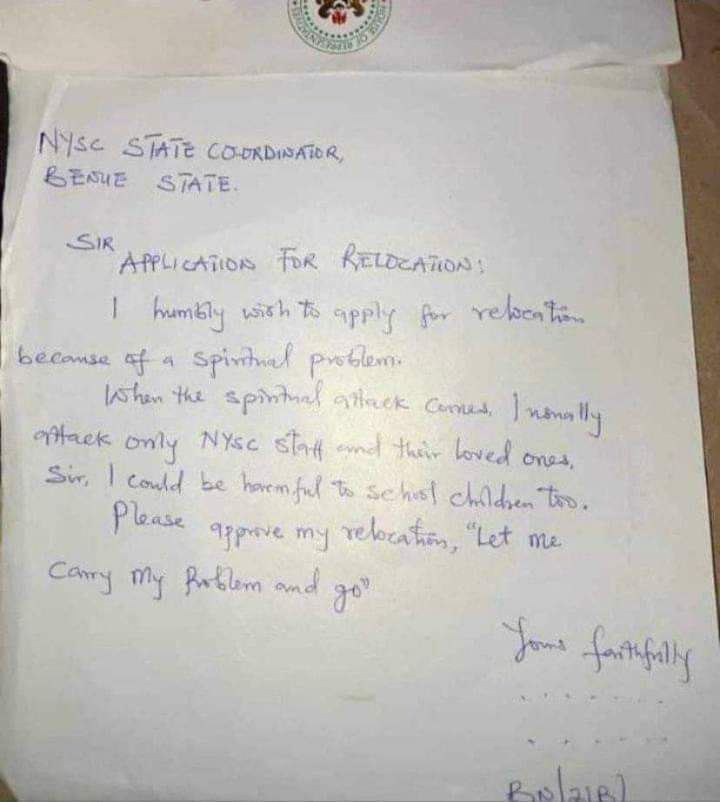 HOUSE OF REPRESENTATIVES
NYSC STATE CO-ORDINATOR,
BENUE STATE.
SIR
APPLICATION FOR RELOCATION:
I humbly wish to apply for relocation
because of a spiritual problem.
When the spiritual attack comes, I usually
attack only NYSC staff and their loved ones.
Sir, I could be harmful to school children too.
Please approve my relocation, "Let me
carry my Problem and go"
Yours faithfully
. . . . . .
. . . . . .
BN/21B/